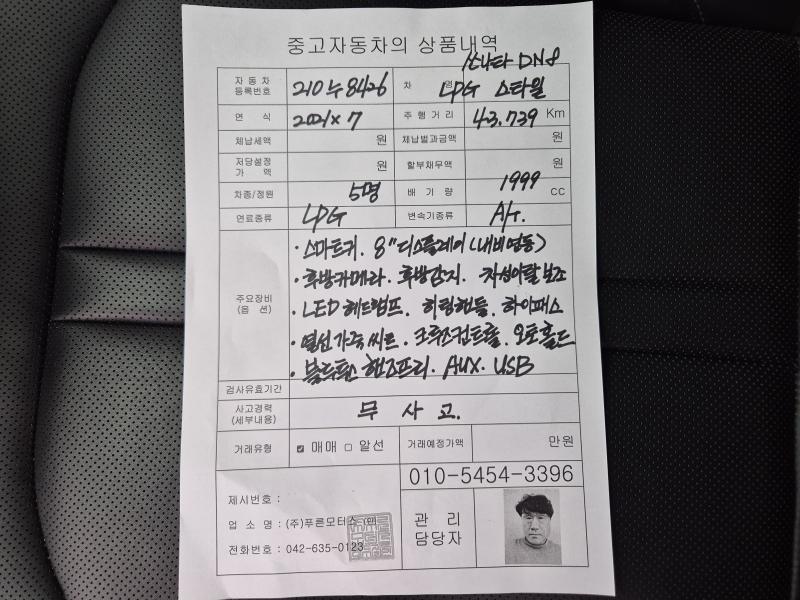 중고자동차의 상품내역
자동차 등록번호 210누8426 차 명 쏘나타 DN8 LPG 스타일
연 식 2021 x 7 주행거리 43.739 Km
체납세액 원 체납벌과금액 원
저당설정 가 액 원 할부채무액 원
차종/정원 5명 배 기 량 1999 cc
연료종류 LPG 변속기종류 A/T.
주요장비 (옵 션)
· 스마트키. 8" 디스플레이 (내비연동)
· 후방카메라. 후방감지. 차선이탈보조
· LED 헤드램프. 히팅핸들. 하이패스
· 열선가죽씨트. 크루즈컨트롤. 오토홀드
· 블루투스 핸즈프리. AUX. USB
검사유효기간
사고경력 (세부내용) 무 사 고.
거래유형 ☑ 매매 □ 알선 거래예정가액 만원
010-5454-3396
제시번호 :
업 소 명 : (주)푸른모터스
전화번호 : 042-635-0123
관 리
담당자